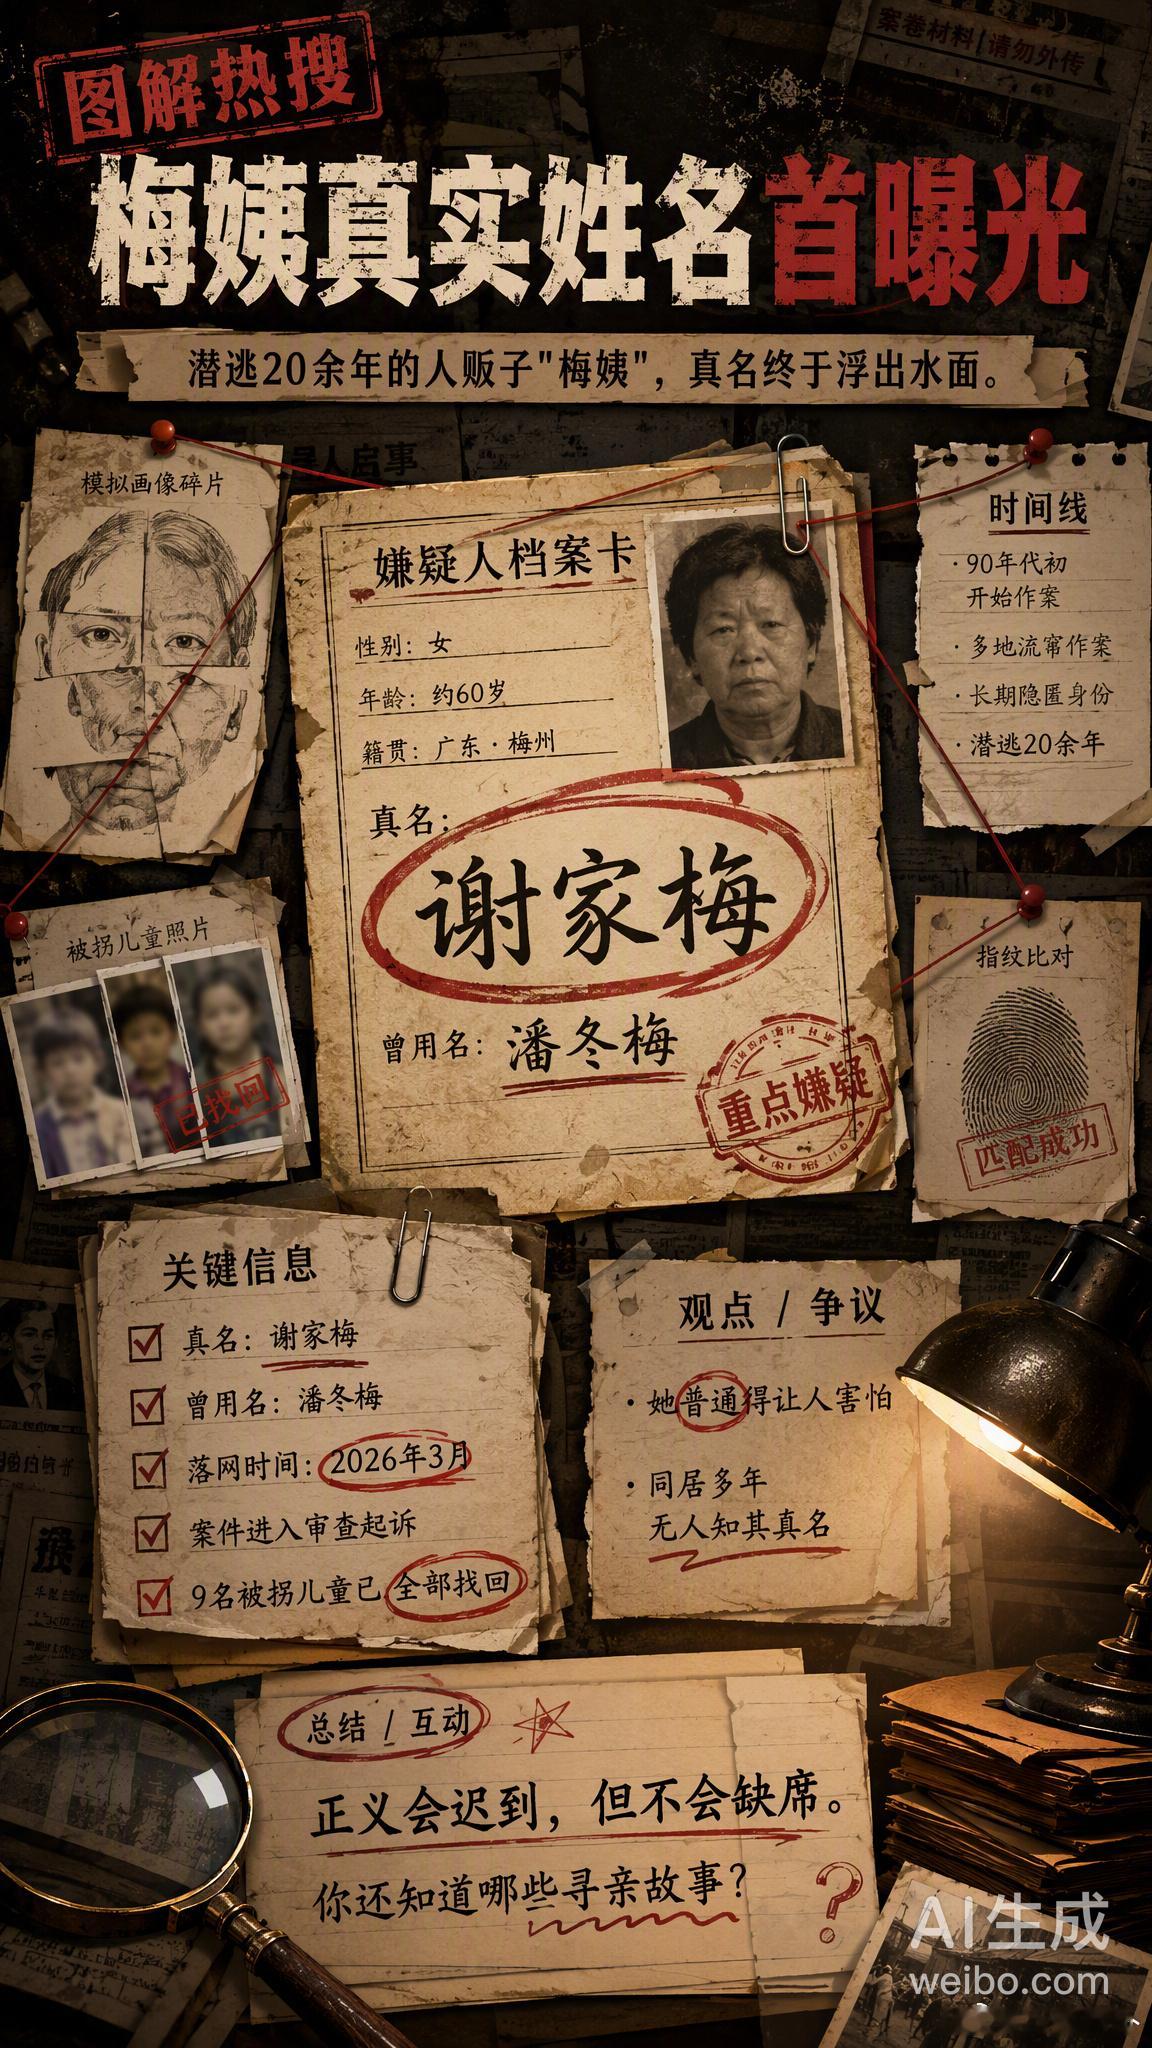 图解热搜
案卷材料 请勿外传
梅姨真实姓名首曝光
潜逃20余年的人贩子"梅姨"，真名终于浮出水面。
模拟画像碎片
寻人启事
嫌疑人档案卡
性别：女
年龄：约60岁
籍贯：广东·梅州
真名：
谢家梅
曾用名：潘冬梅
重点嫌疑
时间线
·90年代初
开始作案
·多地流窜作案
·长期隐匿身份
·潜逃20余年
被拐儿童照片
已找回
指纹比对
匹配成功
关键信息
真名：谢家梅
曾用名：潘冬梅
落网时间：2026年3月
案件进入审查起诉
9名被拐儿童已全部找回
观点 / 争议
·她普通得让人害怕
·同居多年
无人知其真名
总结 / 互动
正义会迟到，但不会缺席。
你还知道哪些寻亲故事？
?
AI生成
weibo.com